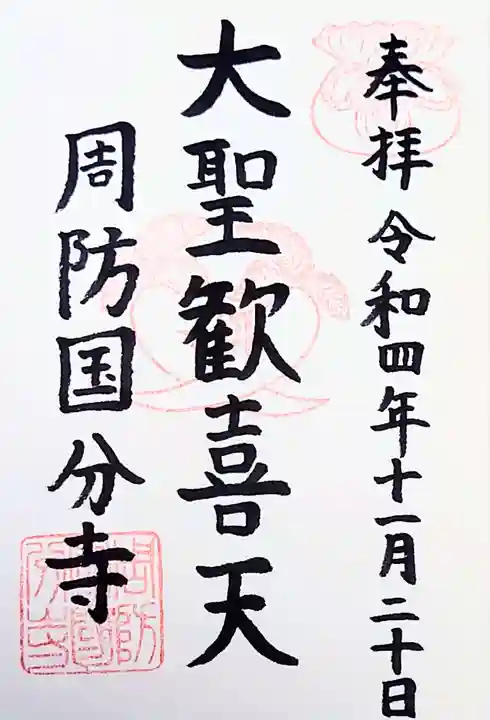 奉拝 令和四年十一月二十日
大聖歓喜天
周防国分寺